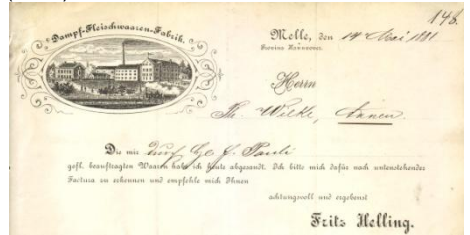 148.
Dampf-Fleischwaaren-Fabrik.
Melle, den 14 Mai 1881
Provinz Hannover.
Herrn
Th. Wilke, Annen.
Die mir durch H. J. Pauli
gefl. beauftragten Waaren habe ich heute abgesandt. Ich bitte mich dafür nach untenstehender
Factura zu erkennen und empfehle mich Ihnen
achtungsvoll und ergebenst
Fritz Helling.